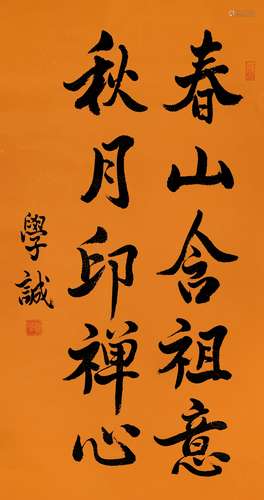 春山含祖意
秋月印禅心
學誠